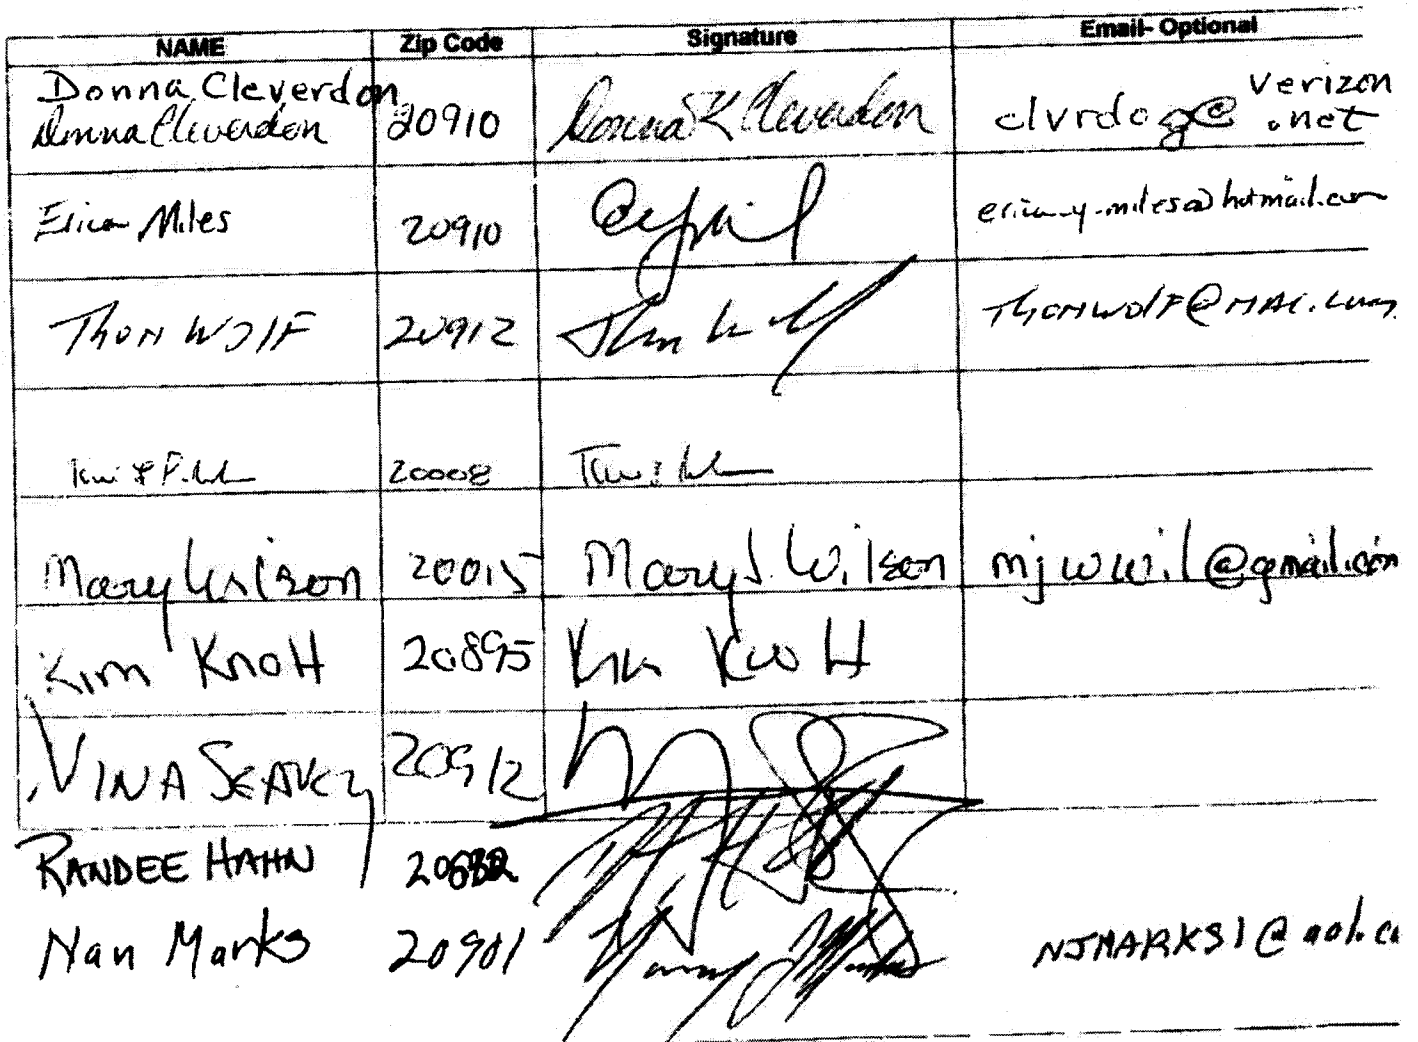 NAME Zip Code Signature Email- Optional
Donna Cleverdon
Donna Cleverdon 20910 Donna K Cleverdon clvrdog@verizon.net
Erica Miles 20910 erica.y.miles@hotmail.com
Thon Wolf 20912 Thon Wolf ThonWolf@MAC.com
20008
Mary Wilson 20015 Mary J. Wilson mjwwil@gmail.com
Kim Knott 20895 Kim Knott
VINA SEAVEY 20912
RANDEE HAHN
Nan Marks 20901 NJMARKS1@aol.co